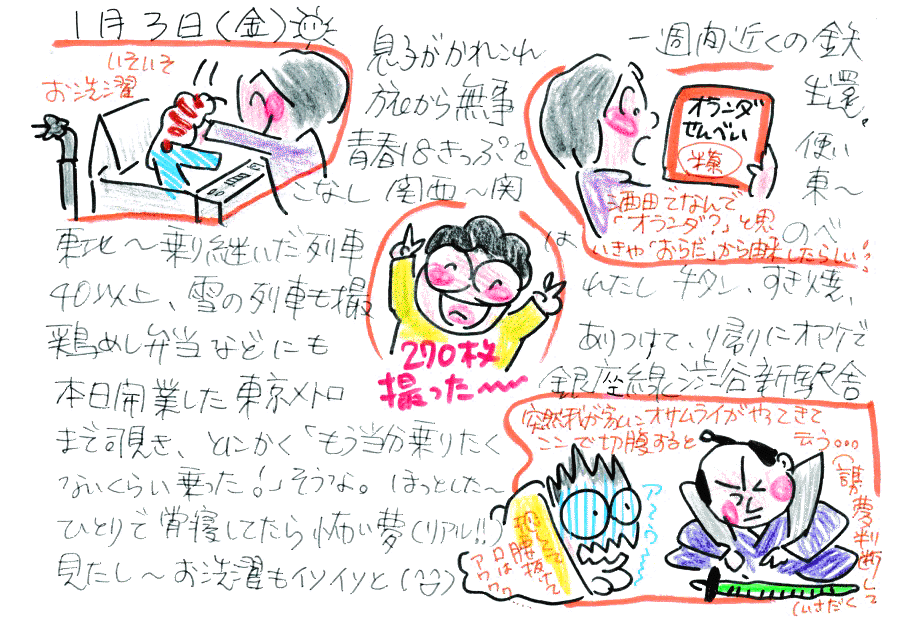 1月3日(金)
いそいそ
お洗濯
息子がかれこれ 一週間近くの鉄
旅から無事 生還。
青春18きっぷを 使い
こなし 関西〜関 東〜
東北〜乗り継いだ列車 は のべ
40以上、雪の列車も撮 れたし 牛タン、すき焼、
鶏めし弁当などにも ありつけて、帰りにオマケで
本日開業した東京メトロ 銀座線渋谷新駅舎
まで覗き、とにかく「もう当分乗りたく
ないくらい乗った!」そうな。ほっとした〜
ひとりで昼寝してたら怖い夢(リアル!!)
見たし〜お洗濯もイソイソと
オランダ
せんべい
酒田でなんで
「オランダ?」と思
いきや「おらだ」から由来したらしい!
270枚
撮った〜
突然我が家にオサムライがやってきて
ここで切腹すると
云う…
(誰か夢判断して
くださいっ)
恐くて
腰抜けて
口は
アワワワ
ア〜ワワ〜